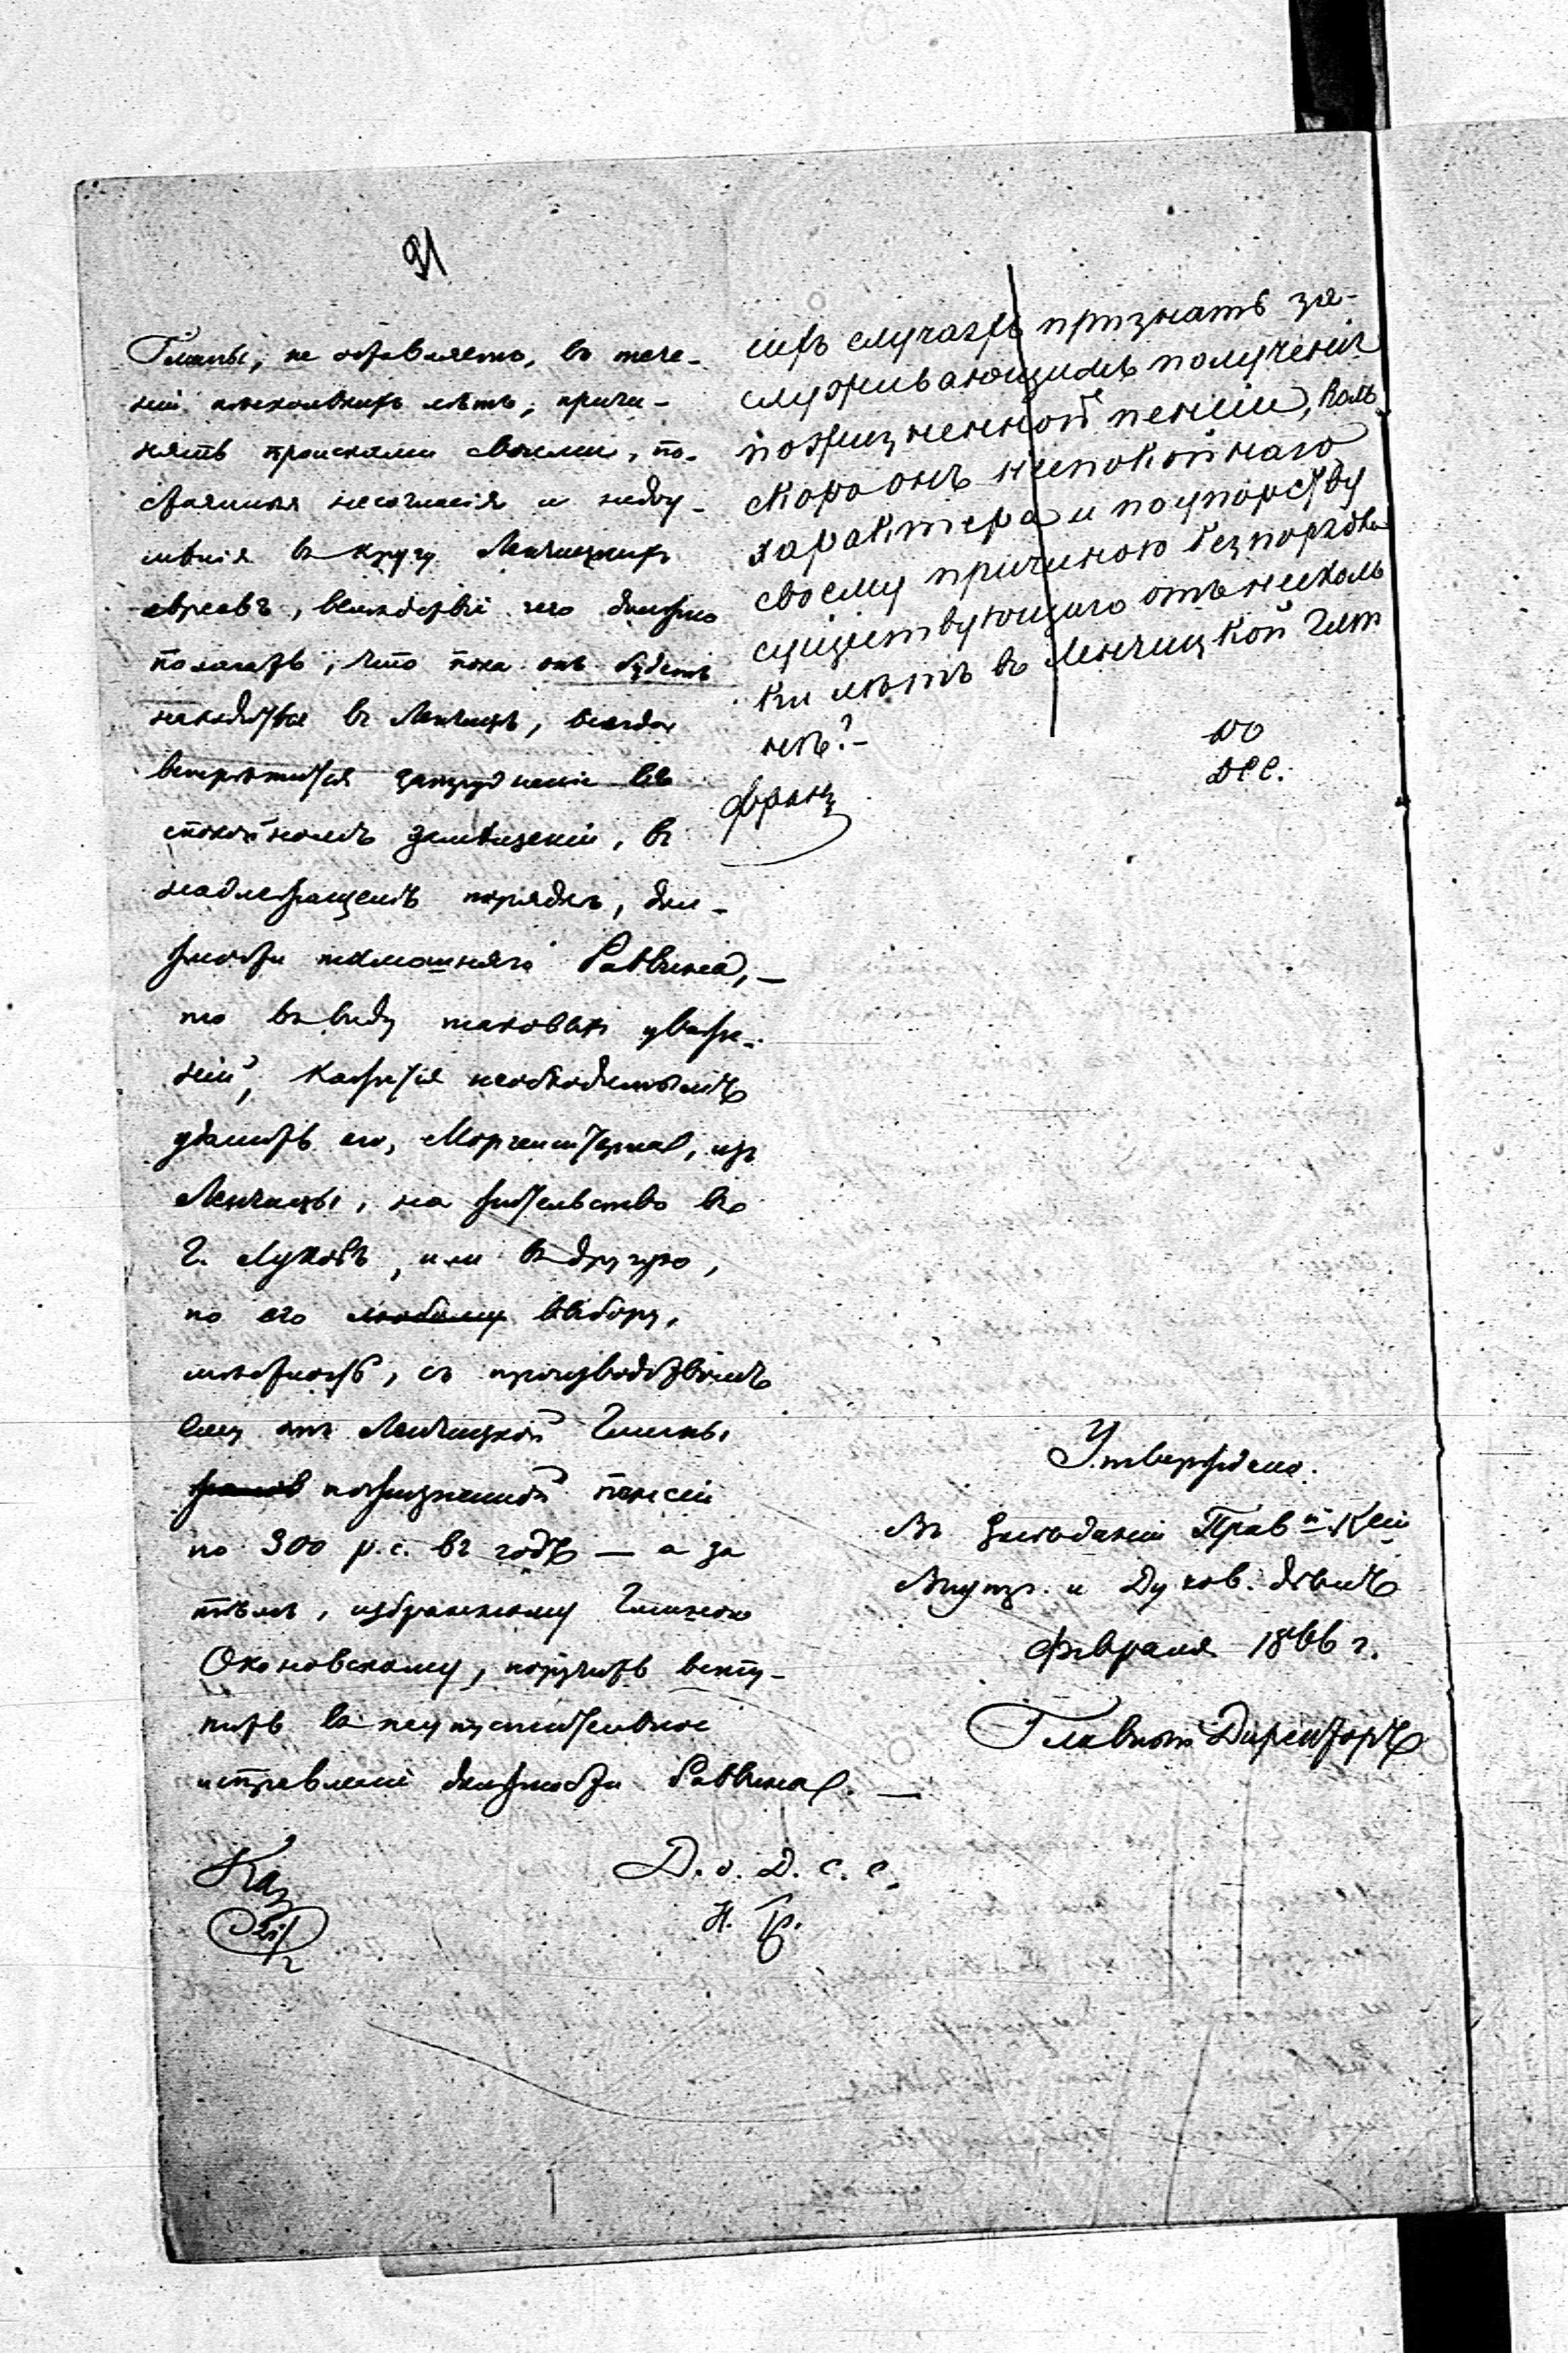 91
Гмины, не оставляетъ, въ тече-
ніи несколькихъ лѣтъ, причи-
нять происками своими, по-
стоянныя несогласія и недоу-
мѣнія въ кругу Ленчицкихъ
евреевъ, вслѣдствіе чего должно
полагать, что пока онъ будетъ
находиться въ Ленчицѣ, всегда
встрѣтится затрудненіе въ
спокойномъ замѣщеніи, въ
надлежащемъ порядкѣ, дол-
жности тамошняго Раввина, —
то въ виду таковыхъ уваже-
ній, кажется необходимымъ
удалить его, Моргенштерна, изъ
Ленчицы, на жительство въ
г. Луковъ, или въ другую,
по его любому выбору,
мѣстность, съ производствомъ
ему отъ Ленчицкой Гмины
пожизненной пенсіи
по 300 р.с. въ годъ — а за
тѣмъ, избранному Гминою
Оконовскому, поручить всту-
пить въ неупустительное
исправленіе должности Раввина. —
Д. о. Д. С. С.
Н. Б.
сихъ случаяхъ признать за-
служивающимъ полученія
пожизненной пенсіи, коль
скоро онъ неспокойнаго
характера и по упорству
своему причиною безпорядка
существующаго отъ несколь
ки лѣтъ въ Ленчицкой Гми
нѣ? –
Франц
ДО
ДСС.
Утверждено.
Въ Засѣданіи Прав.й Ксіи
Внутр. и Духов. дѣлъ
Февраля 1866 г.
Главный Директоръ